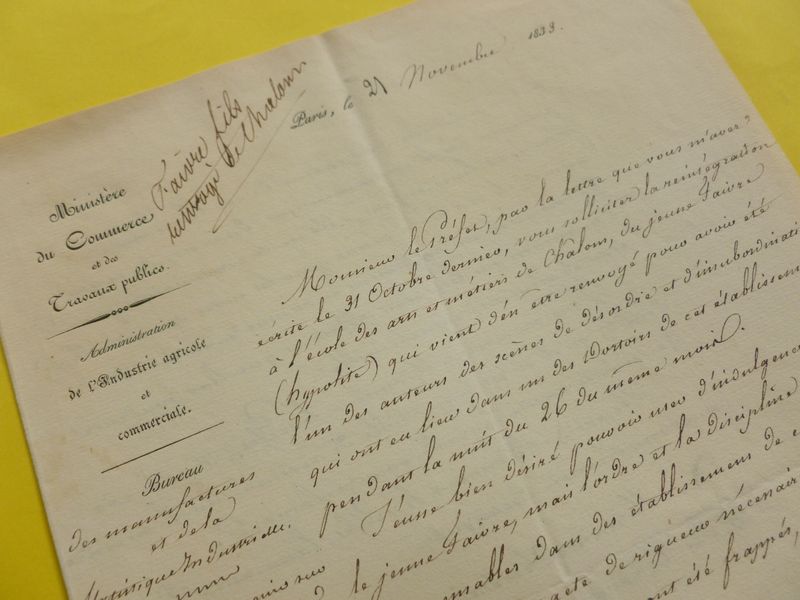 Faivre fils
renvoyé de Chalons
Paris, le 21 Novembre 1833.
Ministère
du Commerce
et des
Travaux publics.
Administration
de l'Industrie agricole
et
commerciale.
Bureau
des manufactures
et de la
Statistique Industrielle.
Monsieur le Préfet, par la lettre que vous m'avez
écrite le 31 Octobre dernier, vous sollicitez la réintégration
à l'école des arts et métiers de Chalons, du jeune Faivre
(hypolite) qui vient d'en être renvoyé pour avoir été
l'un des auteurs des scènes de désordre et d'insubordinati
qui ont eu lieu dans un des Dortoirs de cet établisseme
pendant la nuit du 26 du même mois.
J'eusse bien désiré pouvoir user d'indulgenc
le jeune Faivre, mais l'ordre et la discipline
dans des établissement de c
de rigueur nécessair
ont été frappés,